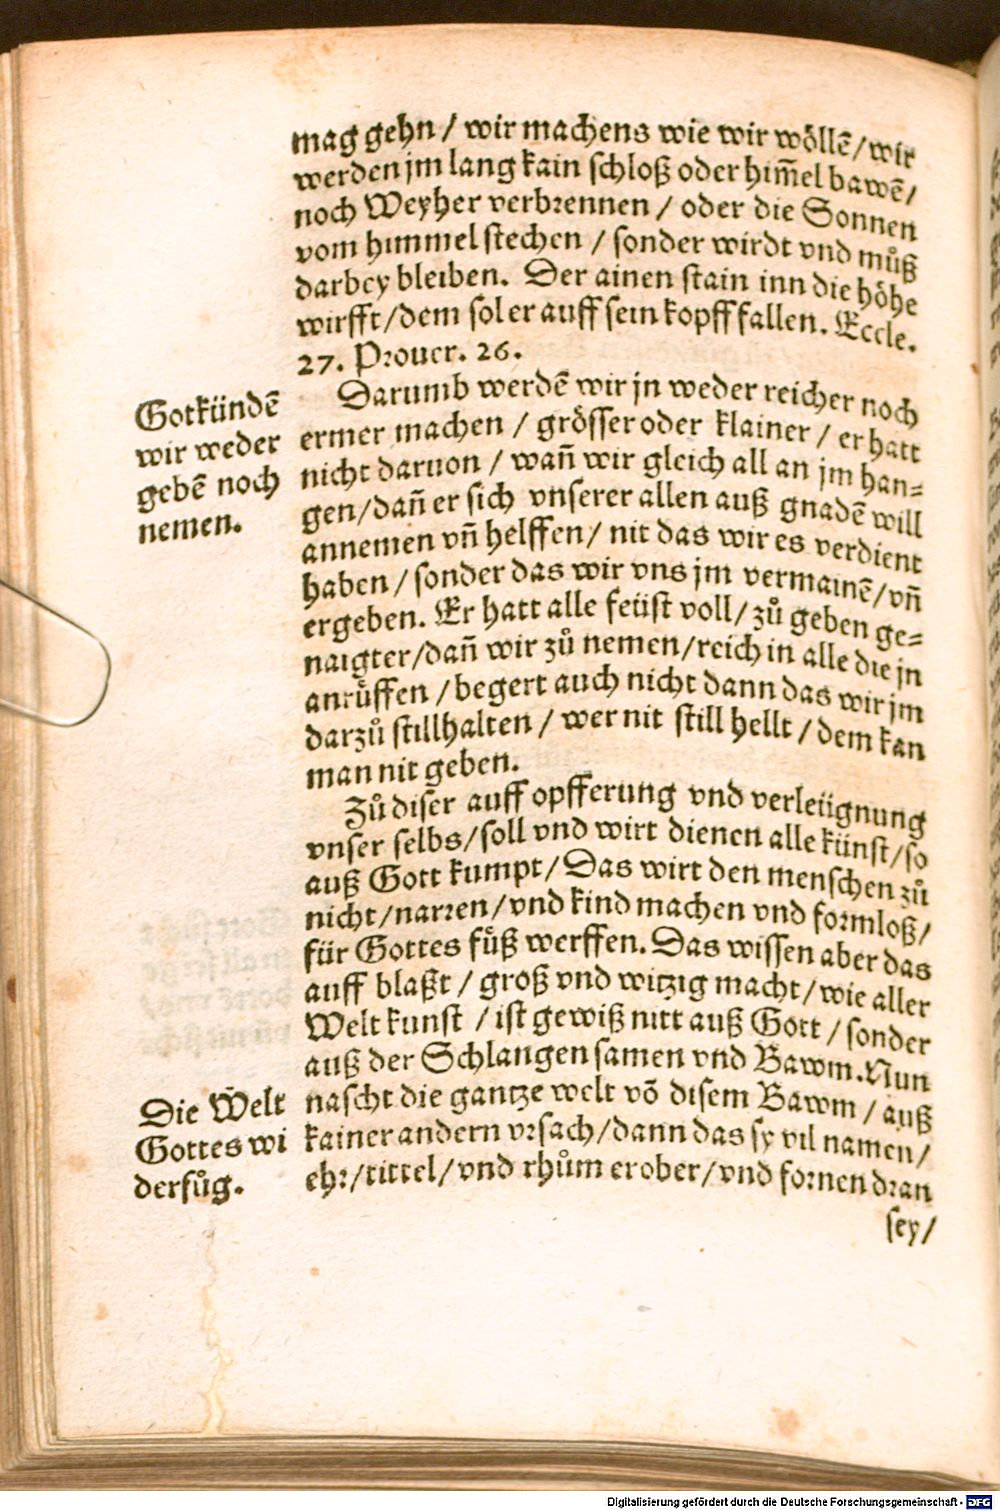 mag gehn / wir machens wie wir wöllē / wir
werden jm lang kain schloß oder him̄el bawē /
noch Weyher verbrennen / oder die Sonnen
vom himmel stechen / sonder wirdt vnd muͦß
darbey bleiben. Der ainen stain inn die höhe
wirfft / dem sol er auff sein kopff fallen. Eccle.
27. Prouer. 26.
Darumb werdē wir jn weder reicher noch
ermer machen / grösser oder klainer / er hatt
nicht daruon / wañ wir gleich all an jm han⸗
gen / dañ er sich vnserer allen auß gnadē will
annemen vñ helffen / nit das wir es verdient
haben / sonder das wir vns jm vermainē / vñ
ergeben. Er hatt alle feüst voll / zuͦ geben ge⸗
naigter / dañ wir zuͦ nemen / reich in alle die jn
anruͤffen / begert auch nicht dann das wir jm
darzuͦ stillhalten / wer nit still hellt / dem kan
man nit geben.
Zuͦ diser auff opfferung vnd verleügnung
vnser selbs / soll vnd wirt dienen alle künst / so
auß Gott kumpt / Das wirt den menschen zuͦ
nicht / narren / vnd kind machen vnd formloß /
für Gottes fuͤß werffen. Das wissen aber das
auff blaßt / groß vnd witzig macht / wie aller
Welt kunst / ist gewiß nitt auß Gott / sonder
auß der Schlangen samen vnd Bawm. Nun
nascht die gantze welt vō disem Bawm / auß
kainer andern vrsach / dann das sy vil namen /
ehr / tittel / vnd rhuͦm erober / vnd fornen dran
sey /
Got kündē
wir weder
gebē noch
nemen.
Die Welt
Gottes wi
derfuͦg.
Digitalisierung gefördert durch die Deutsche Forschungsgemeinschaft - DFG